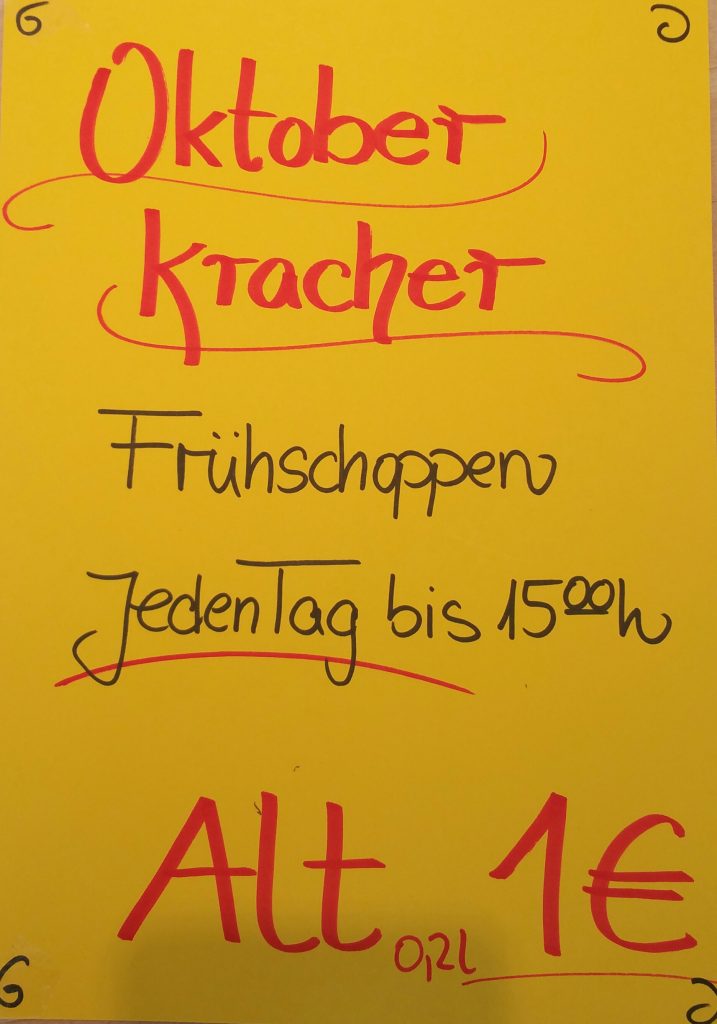 Oktober
kracher
Frühschoppen
Jeden Tag bis 15⁰⁰h
Alt 0,2l 1€